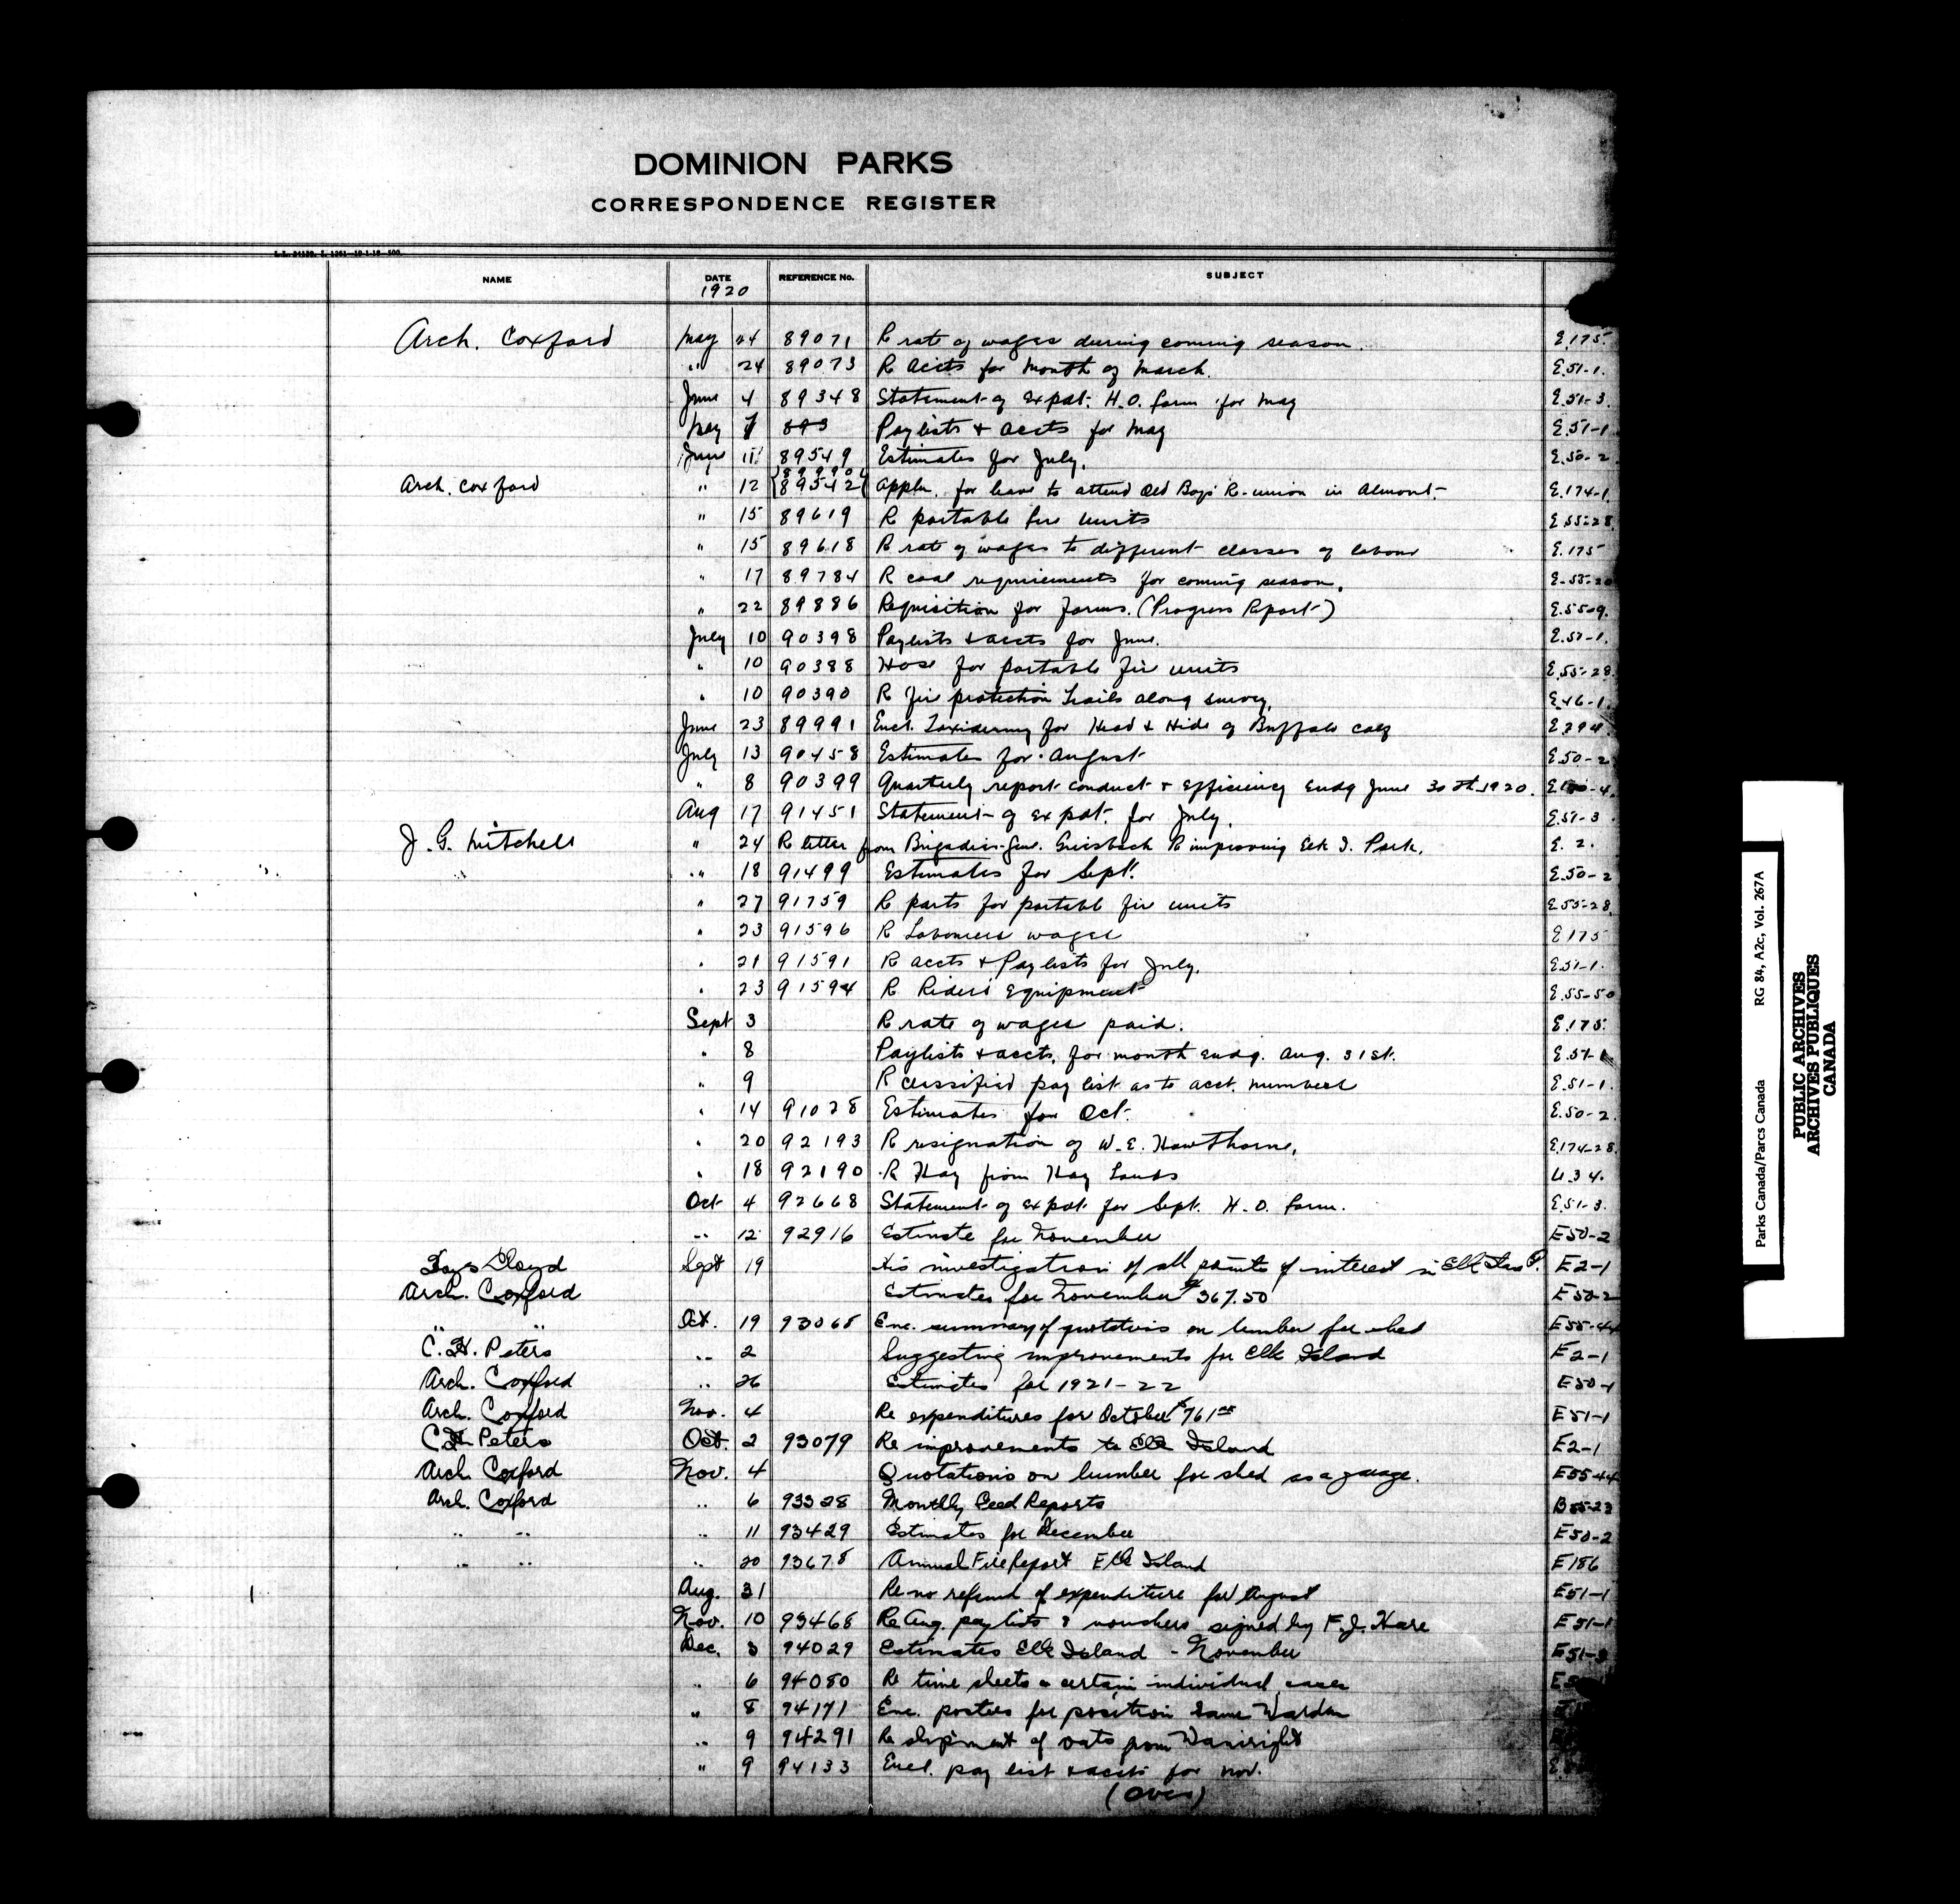 DOMINION PARKS
CORRESPONDENCE REGISTER
NAME DATE REFERENCE No. SUBJECT
1920
Arch. Coxford May 24 89071 R rate of wages during coming season. E.175
" 24 89073 R accts for Month of March. E.51-1.
June 4 89348 Statement of Expdt. H.O. form for May E.51-3.
May 7 893 Paylists & accts for May E.51-1
June 11 89549 Estimates for July. E.50-2
Arch. Coxford " 12 89542 Appln. for leave to attend Old Boys' R-union in Almont- E.174-1.
" 15 89619 R portable fire units E.55-28.
" 15 89618 R rate of wages to different classes of labour E.175
" 17 89784 R coal requirements for coming season. E-55-20
" 22 89886 Requisition for Forms. (Progress Report) E.55-9.
July 10 90398 Paylists & accts for June. E.51-1.
" 10 90388 Hose for portable fire units E.55-28.
" 10 90390 R fire protection trails along survey. E.46-1.
June 23 89991 Encl. Taxidermy for Head & Hide of Buffalo calf E.294.
July 13 90458 Estimates for August E.50-2
" 8 90399 Quarterly report conduct & Efficiency Endg June 30th 1920.
Aug 17 91451 Statement of expdt. for July. E.51-3.
J. G. Mitchell " 24 R letter from Brigadier-Gen. Griesbach R improving Elk I. Park. E. 2.
" 18 91499 Estimates for Sept. E.50-2
" 27 91759 R parts for portable fire units E.55-28.
" 23 91596 R Labourers wages E175
" 21 91591 R accts & Paylists for July. E.51-1.
" 23 91594 R Riders Equipment E.55-50
Sept 3 R rate of wages paid. E.175.
" 8 Paylists & accts, for month endg. Aug. 31st. E.51-1
" 9 R classified pay list as to acct. numbers E.51-1.
" 14 91028 Estimates for Oct. E.50-2.
" 20 92193 R resignation of W. E. Hawthorne. E.174-28.
" 18 92190 R Hay from Hay Lands U.34.
Oct 4 92668 Statement of expdt for Sept. H.O. form. E.51-3.
" 12 92916 Estimate for November E50-2
Lloyd Sept 19 His investigation of all points of interest in Elk Isl. P. E2-1
Arch. Coxford Estimates for November $367.50 E50-2
" " Oct. 19 93068 Enc. summary of quotations on lumber for shed E55-44
C. H. Peters " 2 Suggesting improvements for Elk Island E2-1
Arch. Coxford " 26 Estimates for 1921-22 E50-1
Arch. Coxford Nov. 4 Re expenditures for October $761 E51-1
C. H. Peters Oct. 2 93079 Re improvements to Elk Island E2-1
Arch. Coxford Nov. 4 Quotations on lumber for shed as a garage. E55-44
Arch. Coxford " 6 93328 Monthly Feed Reports B55-23
" " " 11 93429 Estimates for December E50-2
" " " 20 93678 Annual Fire Report Elk Island E186
Aug. 31 Re no refund of expenditure for August E51-1
Nov. 10 93468 Re Aug. pay lists & vouchers signed by F. J. Hare E51-1
Dec. 3 94029 Estimates Elk Island - November E51-3
" 6 94080 Re time sheets & certain individual cases
" 8 94171 Enc. posters for position Game Warden
" 9 94291 Re shipment of oats from Wainright
" 9 94133 Encl. pay list & accts for Nov.
(Over)
Parks Canada/Parcs Canada RG 84, A2c, Vol. 267A
PUBLIC ARCHIVES
ARCHIVES PUBLIQUES
CANADA